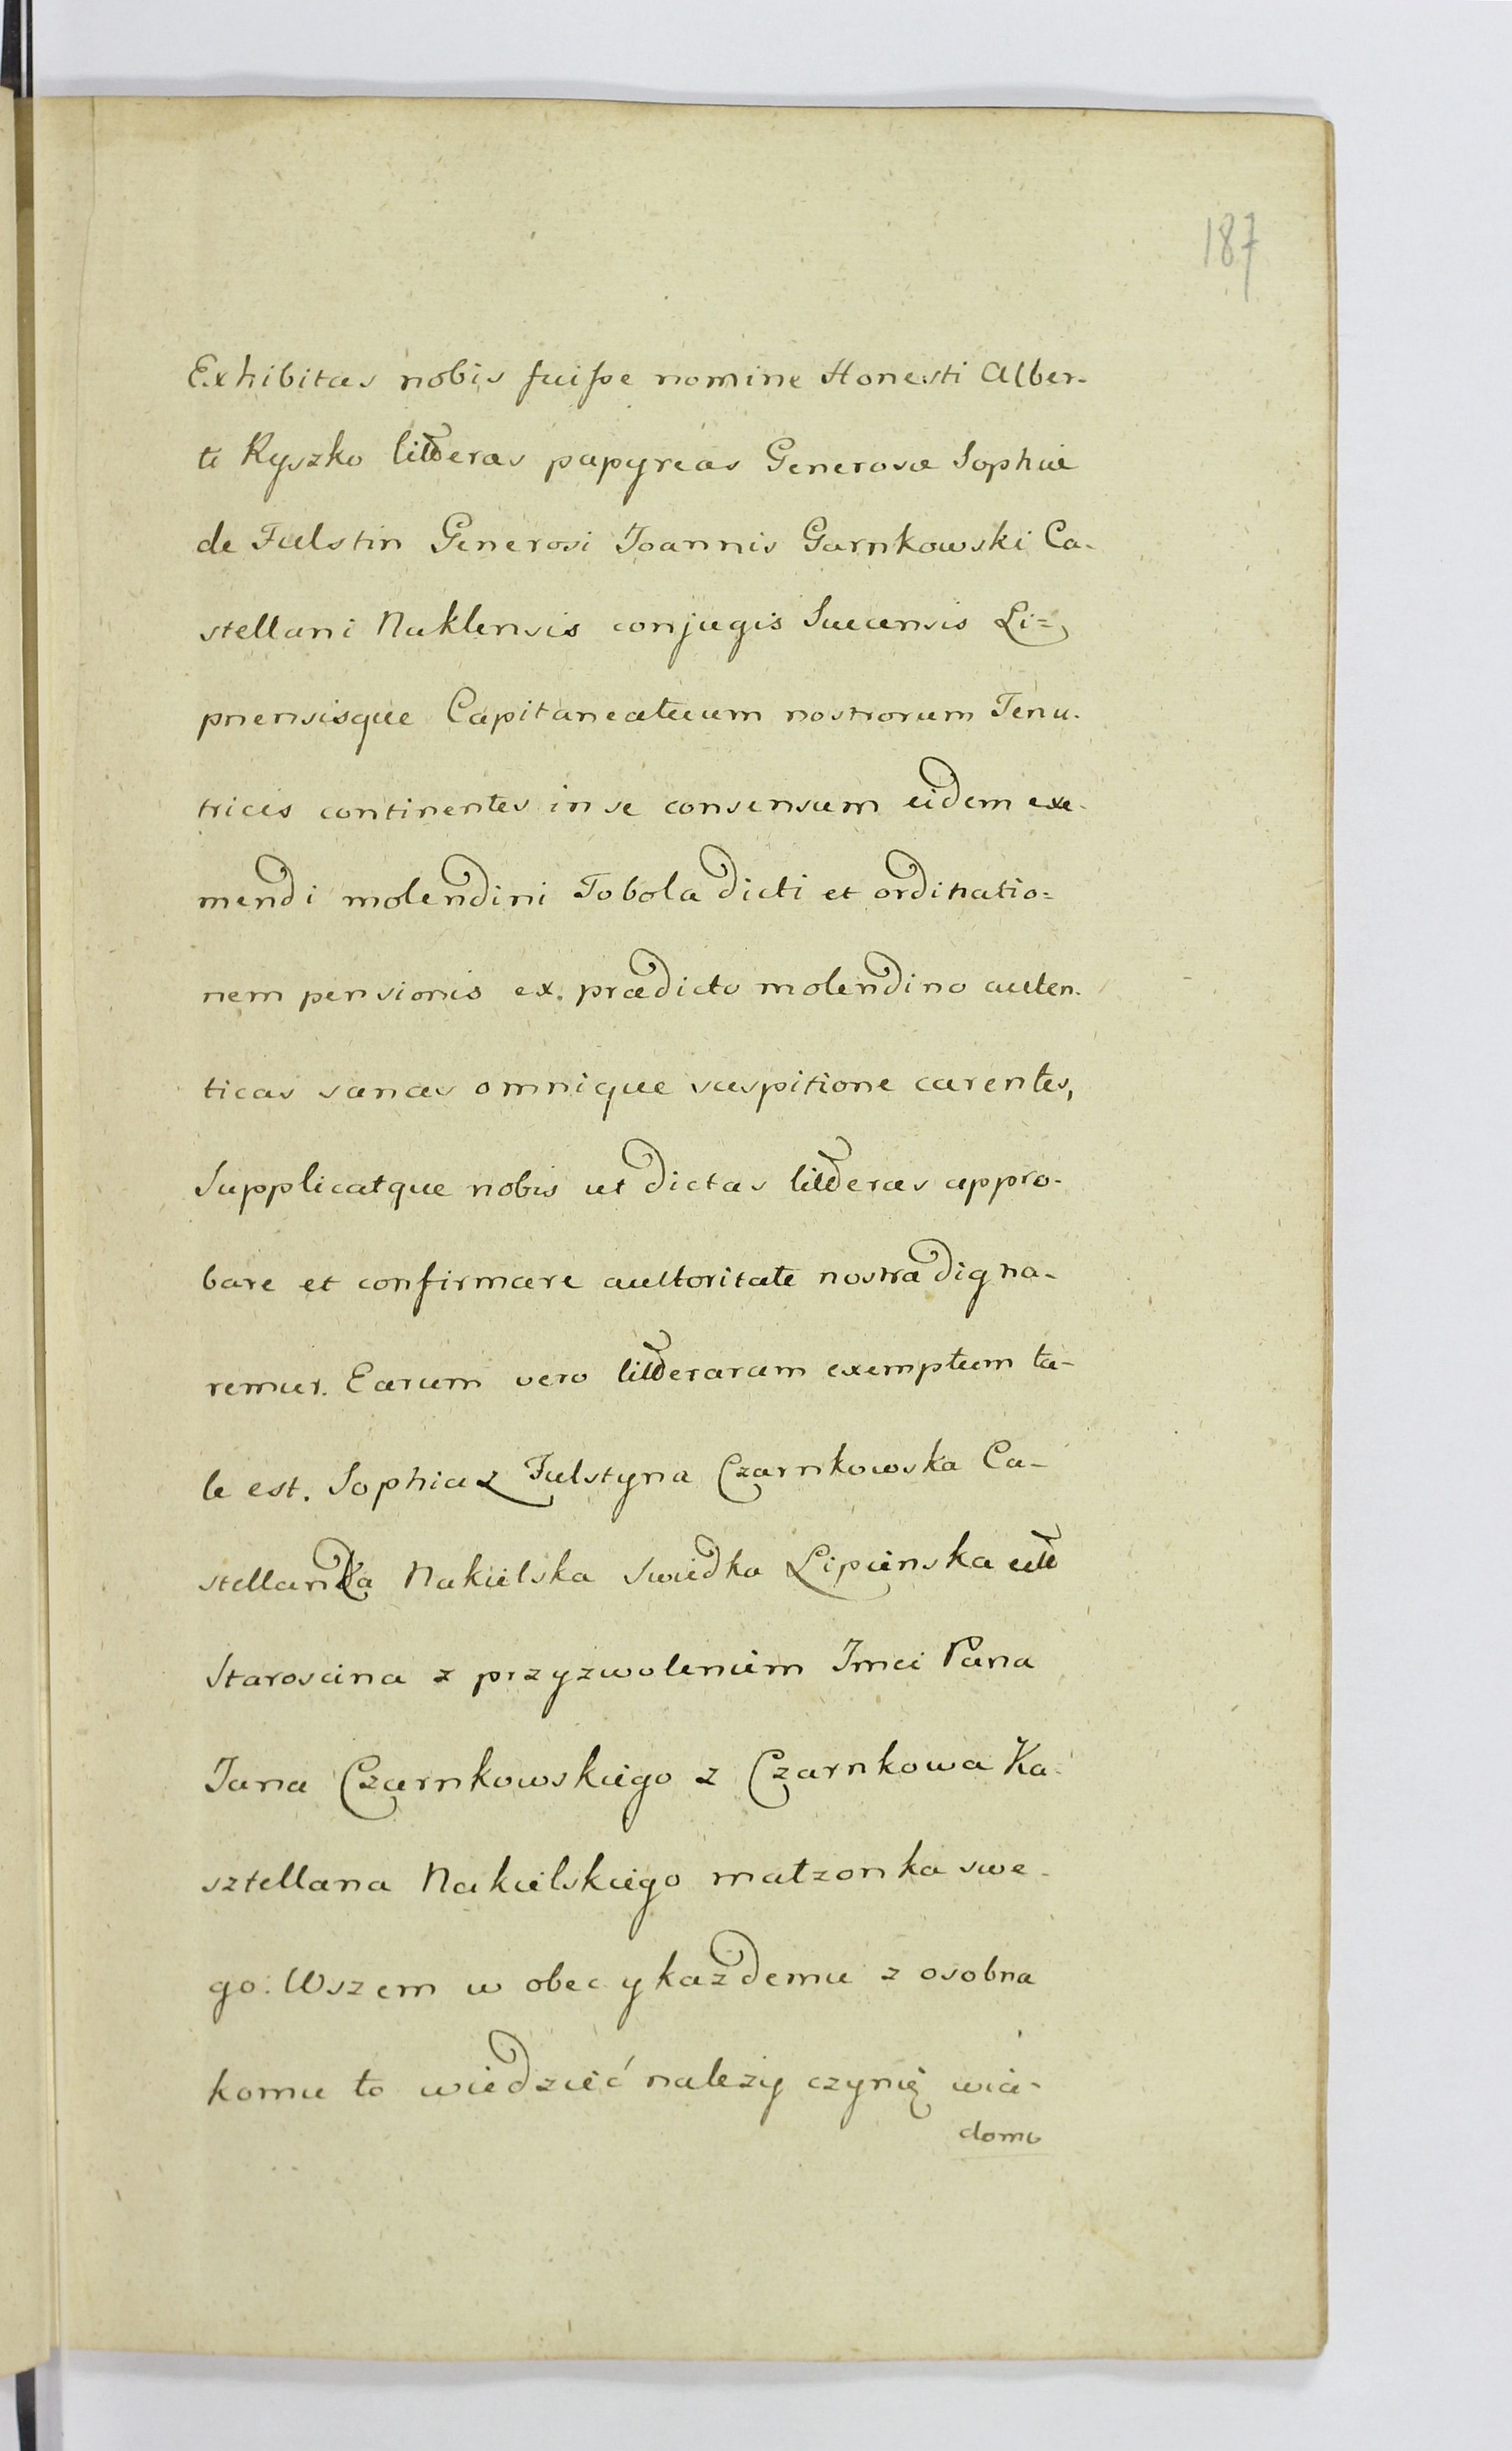 187
Exhibitas nobis fuiſse nomine Honesti Alber-
ti Ryszko litteras papyreas Generosæ Sophiæ
de Fulstin Generosi Joannis Garnkowski Ca-
stellani Naklensis conjugis Suecensis Li=
pnensisque Capitaneatuum nostrorum Tenu-
tricis continentes in se consensum eidem exe-
mendi molendini Tobola dicti et ordinatio=
nem pensionis ex. prædicto molendino auten-
ticas sanas omnique suspitione carentes,
Supplicatque nobis ut dictas litteras appro-
bare et confirmare auttoritate nostra digna-
remur. Earum vero litterarum exemplum ta-
le est. Sophia z Fulstyna Czarnkowska Ca-
stellanka Nakielska Swiedka Lipienska
Staroscina z przyzwoleniem Imci Pana
Jana Czarnkowskiego z Czarnkowa Ka-
sztellana Nakielskiego małzonka swe-
go. Wszem w obec y kazdemu z osobna
komu to wiedzieć nalezy czynię wia-
domo